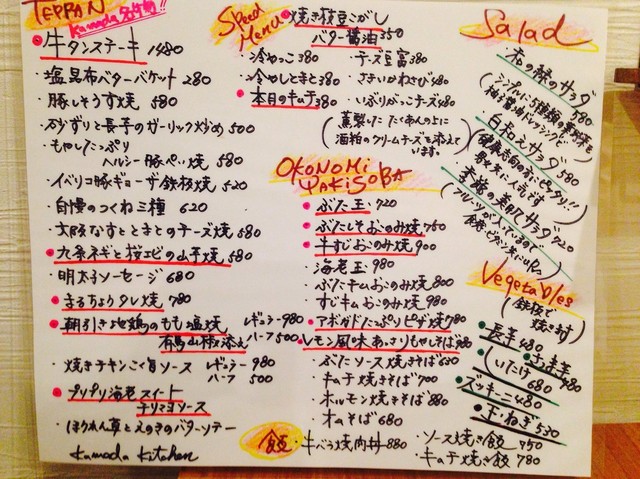 TEPPAN
Kamada 名物!!
牛タンステーキ 1480
・塩昆布バターバゲット 280
・豚しそうす焼 580
・砂ずりと長芋のガーリック炒め 500
・もやしたっぷり
ヘルシー豚ぺい焼 580
・イベリコ豚ギョーザ鉄板焼 520
・自慢のつくね三種 620
・大阪なすとときとのチーズ焼 580
・九条ネギと桜エビの山芋焼 580
・明太子ソーセージ 680
・まるちょうタレ焼 780
・朝引き地鶏のもも塩焼 レギュラー 980
有馬山椒添え ハーフ 500
・焼きチキンこく旨ソース レギュラー 980
ハーフ 500
・プリプリ海老スイート
チリマヨソース
・ほうれん草とえのきのバターソテー
Kamada Kitchen
Speed
Menu
・焼き枝豆こがし
バター醤油 350
・冷やっこ 380
・チーズ豆富 380
・冷やしとまと 380
・さきいかわさび 480
・本日のキムチ 380
・いぶりがっこチーズ 480
(薫製したたくあんの上に
酒粕のクリームチーズを添えて
います。)
OKONOMI
YAKISOBA
・ぶた玉 720
・ぶたしそおこのみ焼 750
・牛すじおこのみ焼 900
・海老玉 980
・ぶたキムおこのみ焼 800
・すじキムおこのみ焼 980
・アボガドたっぷりピザ焼 780
・レモン風味あっさりもやしそば 980
・ぶたソース焼きそば 630
・キムチ焼きそば 700
・ホルモン焼きそば 880
・オムそば 680
飯
・牛バラ焼肉丼 880
・ソース焼き飯 750
・キムチ焼き飯 780
Salad
・春の緑のサラダ 580
・白和えサラダ 580
健康志向の方にピッタリ!!
男女共に人気です
・季節の美肌サラダ 720
フルーツが入っているので
Vegetables
(鉄板で
焼き付)
・長芋 480
・さつま芋 480
・しいたけ 680
・ズッキーニ 480
・玉ねぎ 530